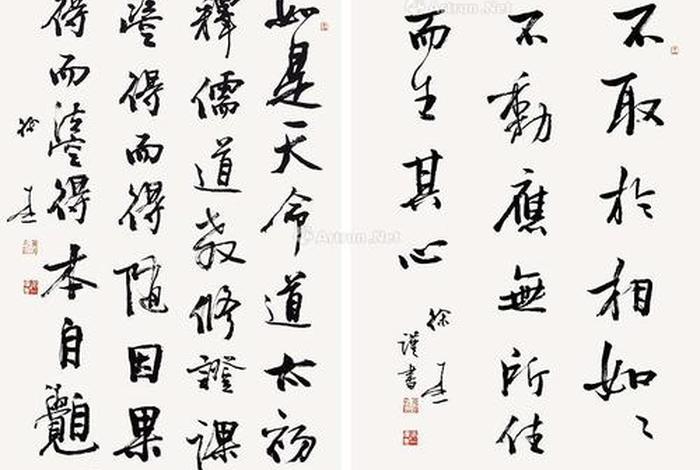 不取於相如〻
不動應無所住
而生其心
徐
謹書
如是天命道太初
釋儒道教修證課
證得而得隨因果
得而證得本自
徐
Artron.Net
Artron.Net